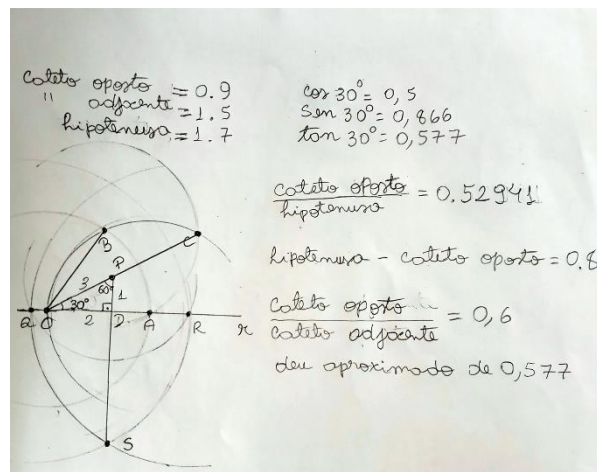 cateto oposto = 0.9
" adjacente = 1.5
hipotenusa = 1.7
cos 30° = 0,5
sen 30° = 0,866
tan 30° = 0,577
cateto oposto
hipotenusa
= 0.52941
hipotenusa - cateto oposto = 0.8
cateto oposto
cateto adjacente
= 0,6
deu aproximado de 0,577
B
C
P
3
60°
1
30°
2
Q
O
D
A
R
r
S